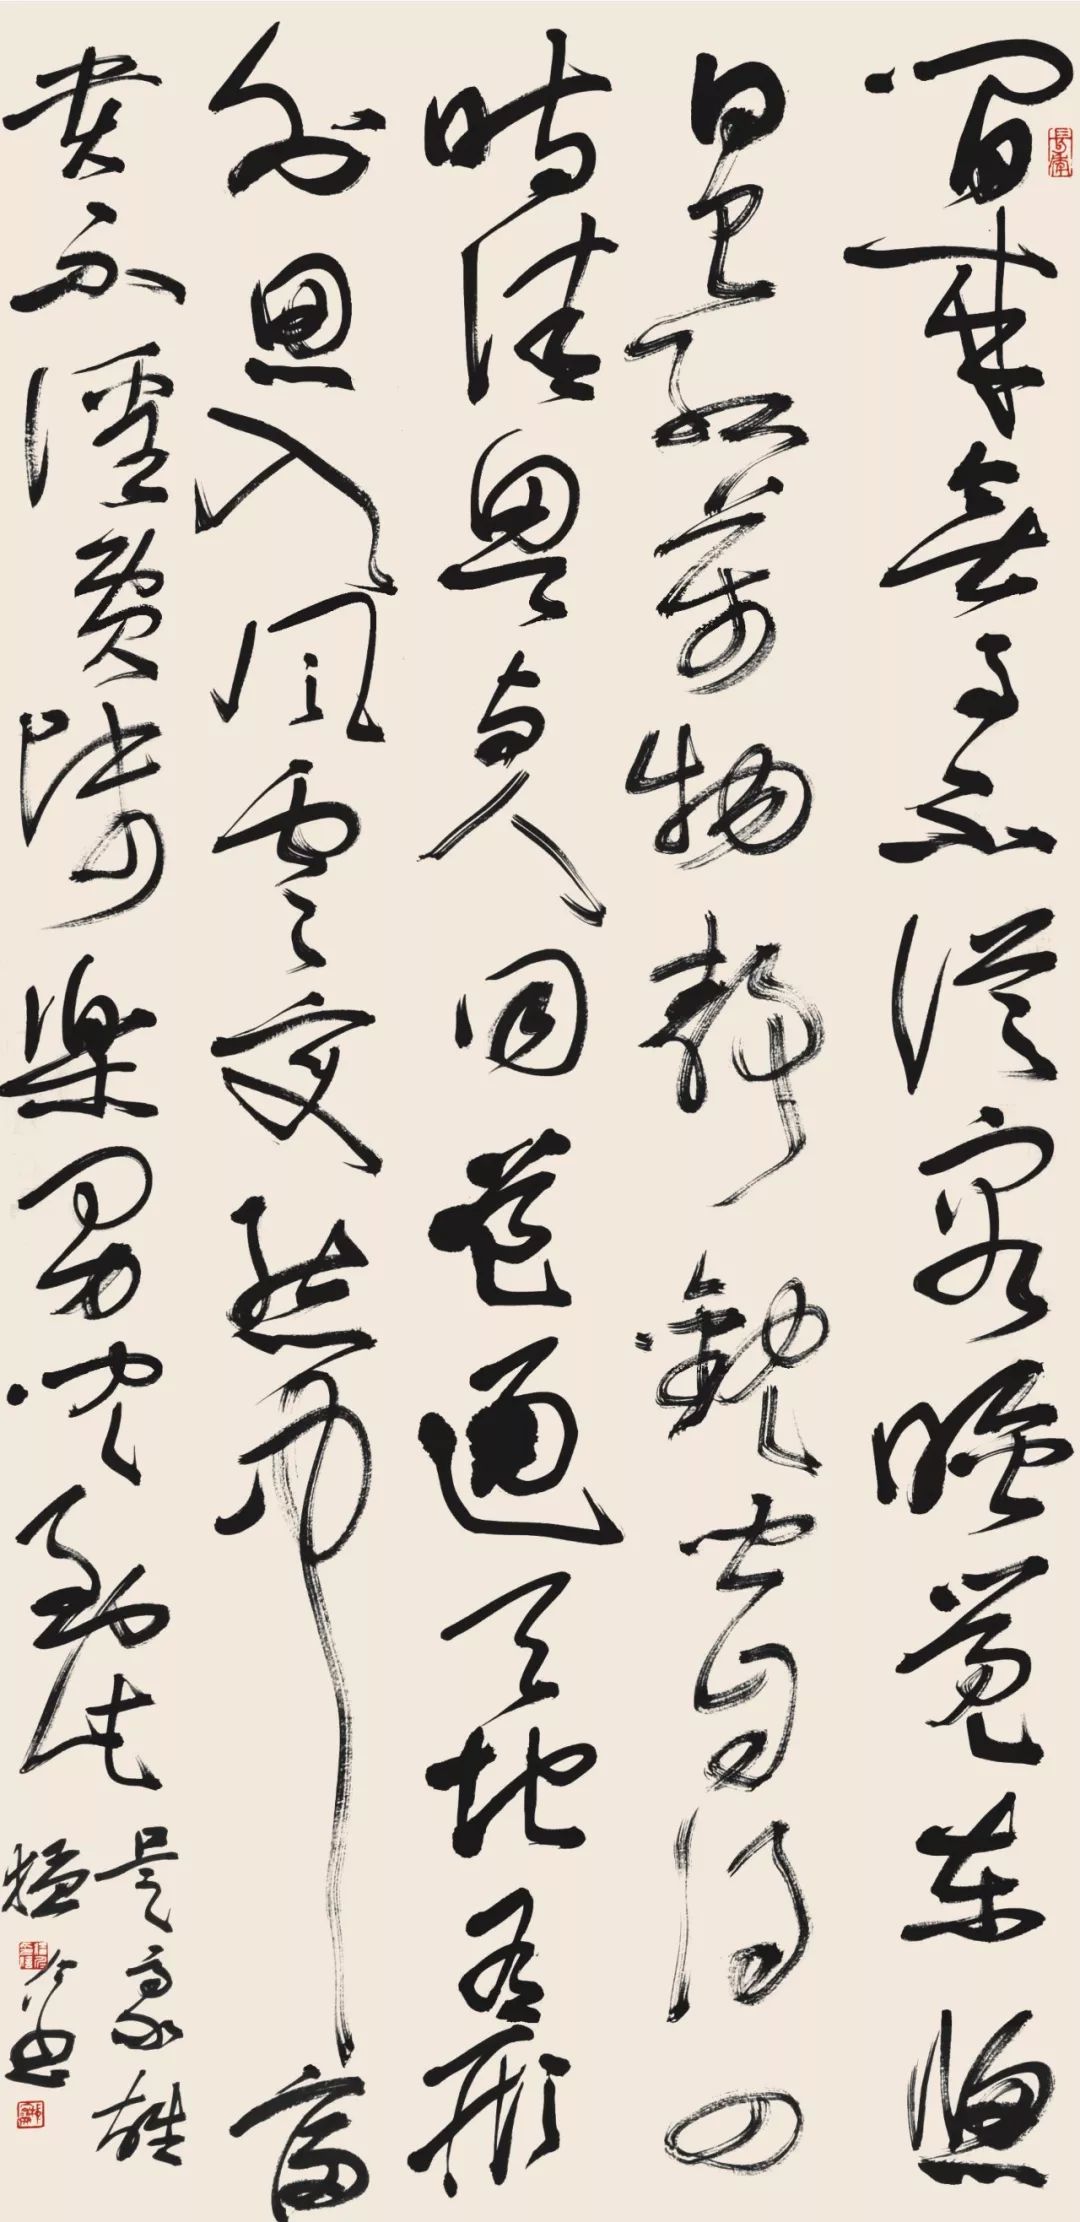 間來無事不從容睡覺東窗
日已紅萬物靜觀皆自得四
時佳興與人同道通天地有形
外思入風雲變態中富
貴不淫貧賤樂男兒到此
是豪雄